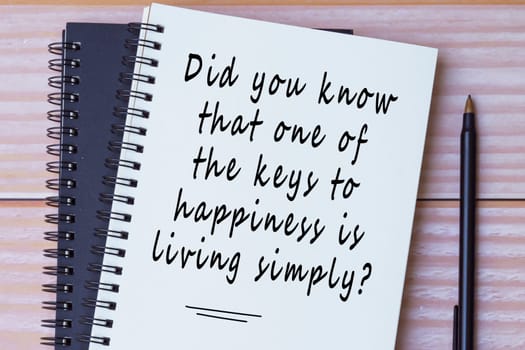 Did you know
that one of
the keys to
happiness is
living simply?